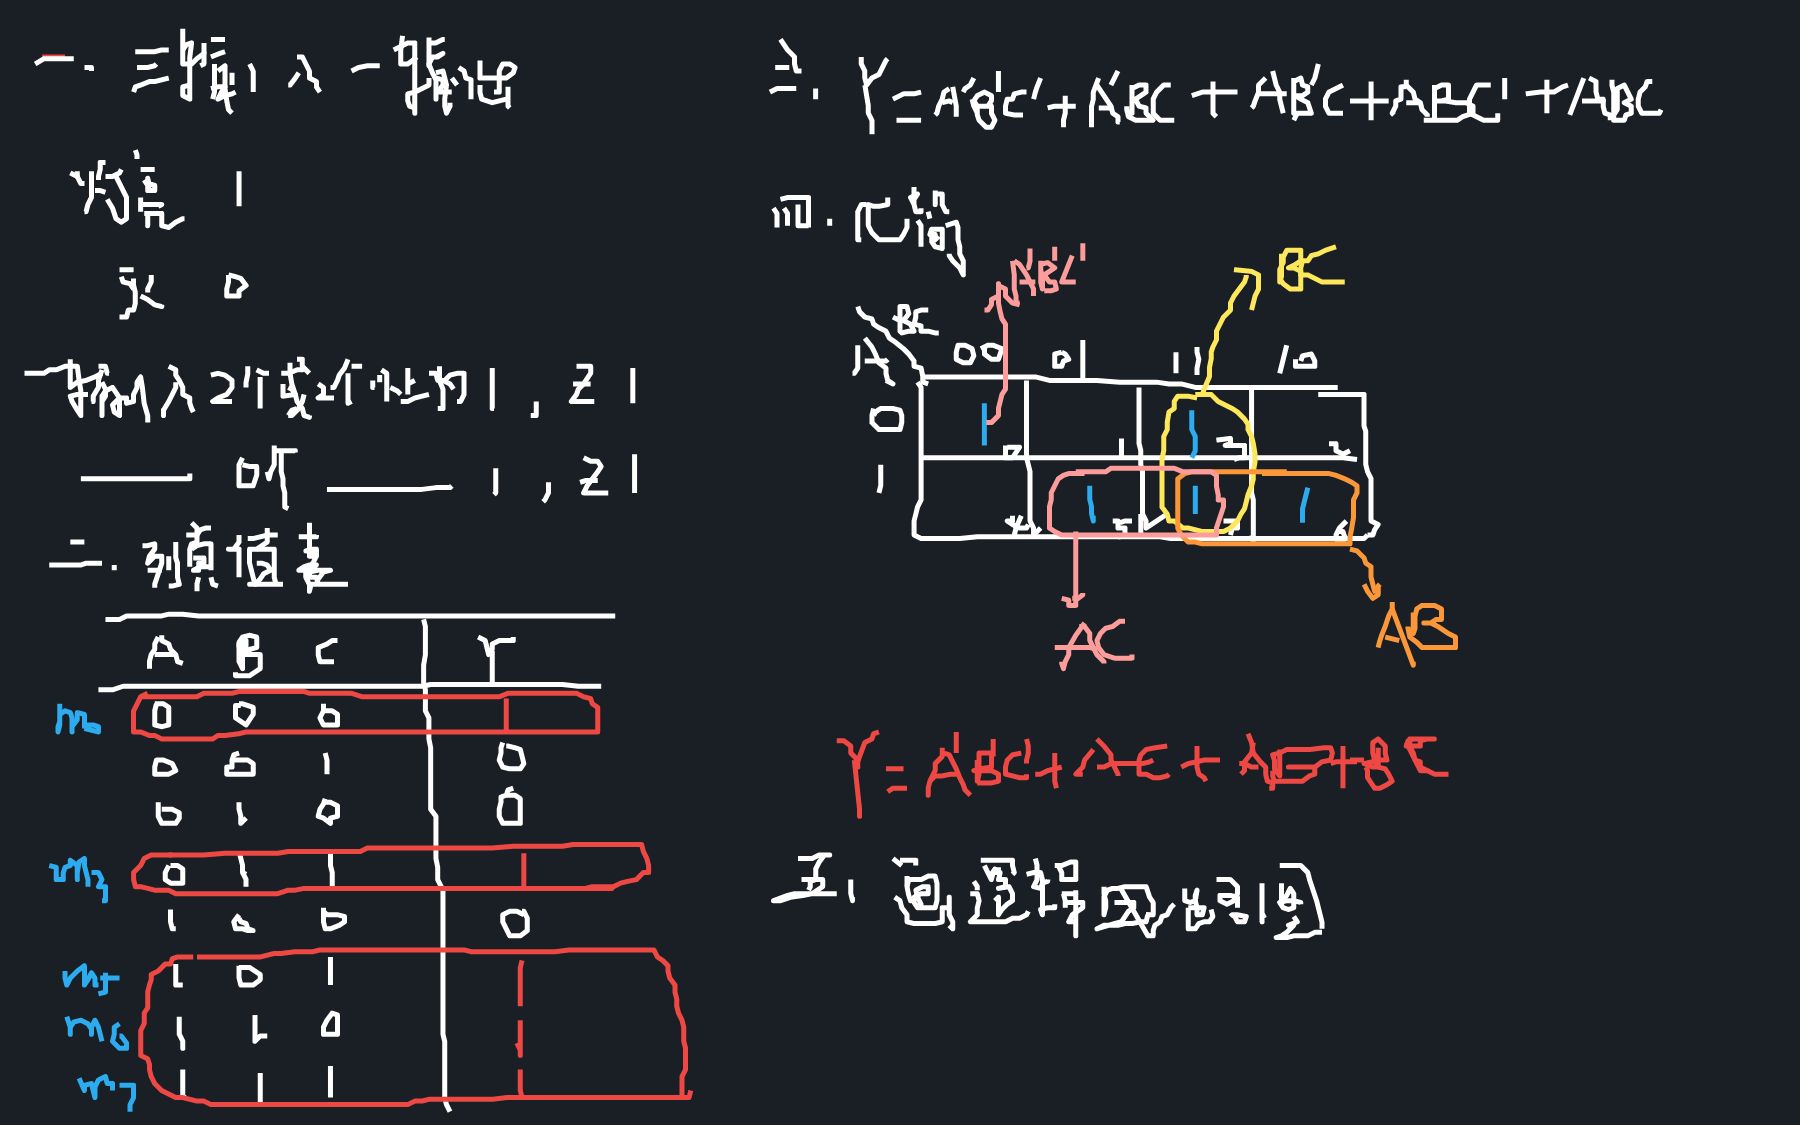 一. 三输入一输出
灯亮 1
灭 0
一输入2个或2个以上为1, Z 1
0个 1, Z 1
二. 列真值表
A B C Y
m0 0 0 0 1
0 0 1 0
0 1 0 0
m3 0 1 1 1
1 0 0 0
m5 1 0 1 1
m6 1 1 0 1
m7 1 1 1 1
三. Y=A'B'C'+A'BC+AB'C+ABC'+ABC
四. 化简
A'B'C' BC
A BC 00 01 11 10
0 1 0 1 1 3 2
1 4 1 5 1 7 1 6
AC AB
Y=A'B'C'+AC+AB+BC
五. 画逻辑